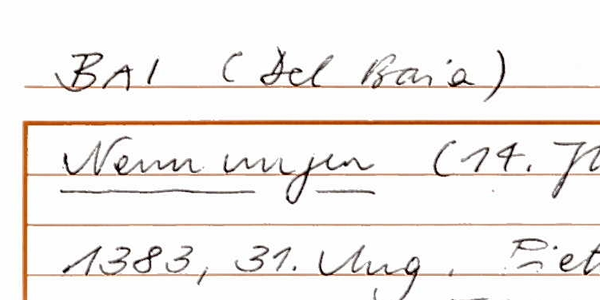 BAI (Del Baia)
Nennungen (14. Jh
1383, 31. Aug. Piet